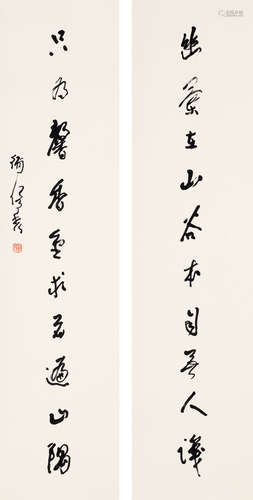 幽蘭在山谷本自無人識
只為馨香重求者遍山隅
衛俊秀